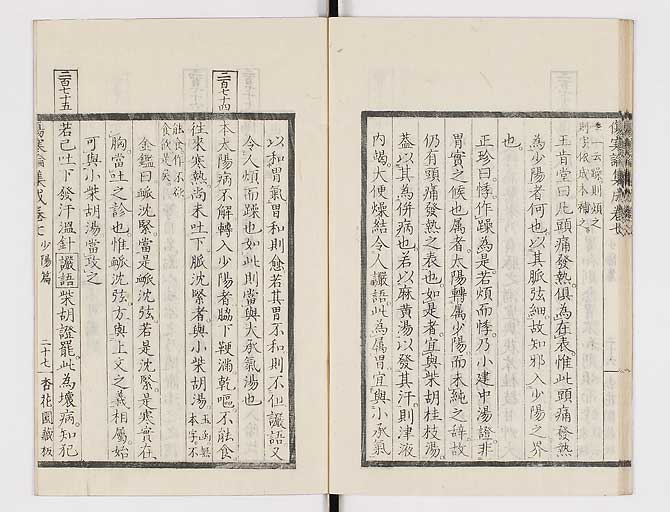 傷寒論集成卷七
王肯堂曰凡頭痛發熱俱為在表惟此頭痛發熱
為少陽者何也以其脈弦細故知邪入少陽之界
也
正珍曰悸作躁為是若煩而悸乃小建中湯證非
胃實之候也屬者太陽轉屬少陽而未純之辭故
仍有頭痛發熱之表也如是者宜與柴胡桂枝湯
蓋以其為併病也若以麻黃湯以發其汗則津液
內竭大便燥結令人讝語此為屬胃宜與小承氣
以和胃氣胃和則愈若其胃不和則不但讝語又
令人煩而躁也如此則當與大承氣湯也
二百七十四
本太陽病不解轉入少陽者脇下鞕滿乾嘔不能食
往來寒熱尚未吐下脈沈緊者與小柴胡湯
能食作不欲
食飲是矣
金鑑曰脈沈緊當是脈沈弦若是沈緊是寒實在
胸當吐之診也惟脈沈弦方與上文之義相屬始
可與小柴胡湯當攻之
二百七十五
若已吐下發汗溫針讝語柴胡證罷此為壞病知犯
傷寒論集成卷七 少陽篇 二十七 杏花園藏板